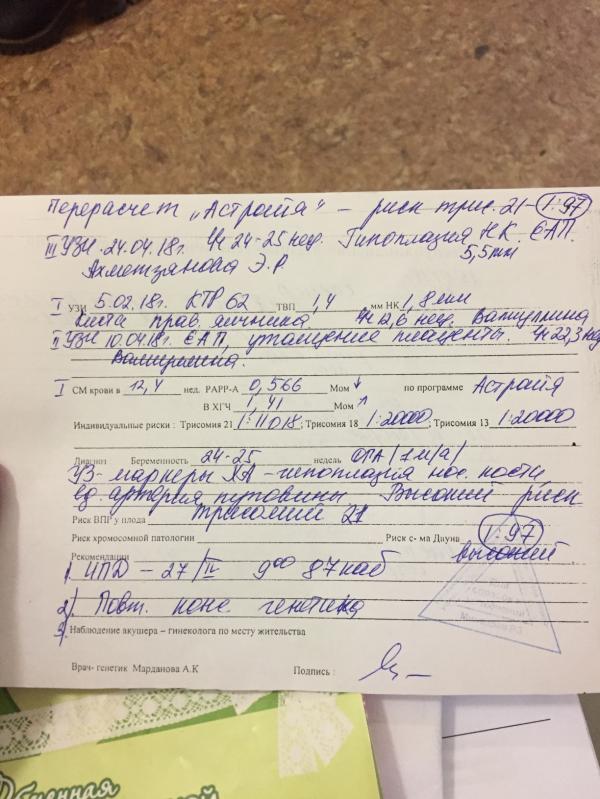 Перерасчет „Астрайя" – риск трис. 21 – 1:97
III УЗИ. 24.04.18г. Ч: 24-25 нед. Гипоплазия НК. ЕАП.
5,5 mm
Ахметзянова Э.Р.
I УЗИ 5.02.18г. КТР 62 ТВП 1,4 мм НК 1,8 мм
Киста прав. яичника 12,6 нед.
II УЗИ 10.04.18г. ЕАП, утолщение плаценты. 22,3 нед
I СМ крови в 12,4 нед. PAPP-A 0,566 Мом ↓ по программе Астройя
В ХГЧ 1,41 Мом ↑
Индивидуальные риски : Трисомия 21 1:11018; Трисомия 18 1:20000; Трисомия 13 1:20000
Диагноз Беременность 24-25 недель ОПА (1 м/а)
УЗ-маркеры ХА – гипоплазия нос. кости
ед. артерия пуповины Высокий риск
Риск ВПР у плода трисомии 21
Риск хромосомной патологии Риск с- ма Дауна 1:97
высокий
Рекомендации
1. ИПД – 27/IV 9⁰⁰ 87 каб
2) Повт. конс. генетика
3. Наблюдение акушера – гинеколога по месту жительства
Врач- генетик Марданова А.К Подпись :